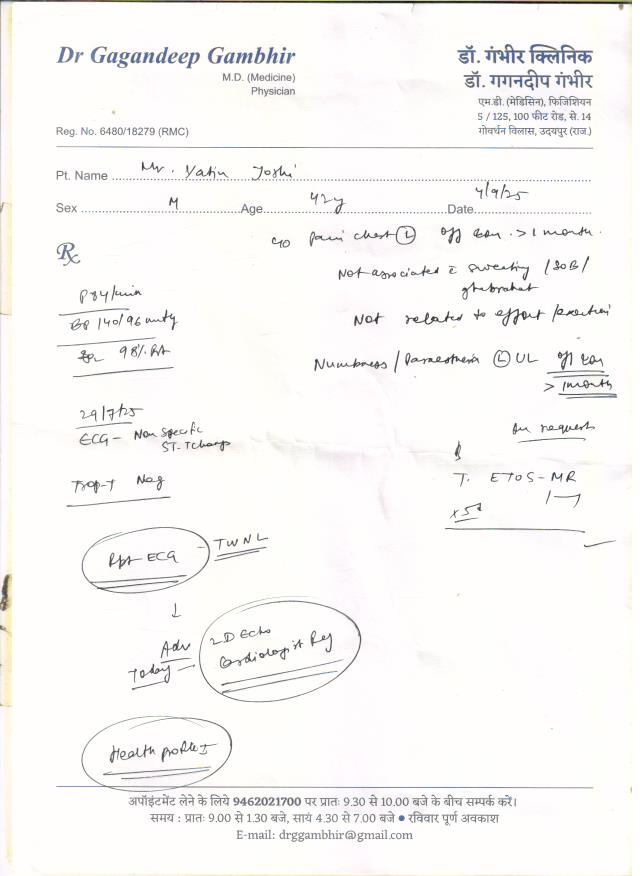 Dr Gagandeep Gambhir
M.D. (Medicine)
Physician
Reg. No. 6480/18279 (RMC)
डॉ. गंभीर क्लिनिक
डॉ. गगनदीप गंभीर
एम.डी. (मेडिसिन), फिजिशियन
5 / 125, 100 फीट रोड़, से. 14
गोवर्धन विलास, उदयपुर (राज.)
Pt. Name Mr. Yatin Joshi
Sex M Age 42y Date 4/9/25
Rx
c/o pain chest (L) off & on > 1 month.
Not associated c sweating / SOB /
ghabrahat
Not related to effort / exertion
Numbness / Paraesthesia (L) UL off & on
> 1 month
P 84/min
BP 140/96 mmHg
98% RA
29/7/25
ECG - Non specific
ST-T changes
Trop-T Neg
on request
T. ETOS-MR
x 5d
Rpt ECG - TWNL
↓
Adv 2D Echo
Today Cardiologist Ref
Health profile I
अपॉइंटमेंट लेने के लिये 9462021700 पर प्रातः 9.30 से 10.00 बजे के बीच सम्पर्क करें।
समय : प्रातः 9.00 से 1.30 बजे, सायं 4.30 से 7.00 बजे ● रविवार पूर्ण अवकाश
E-mail: drggambhir@gmail.com